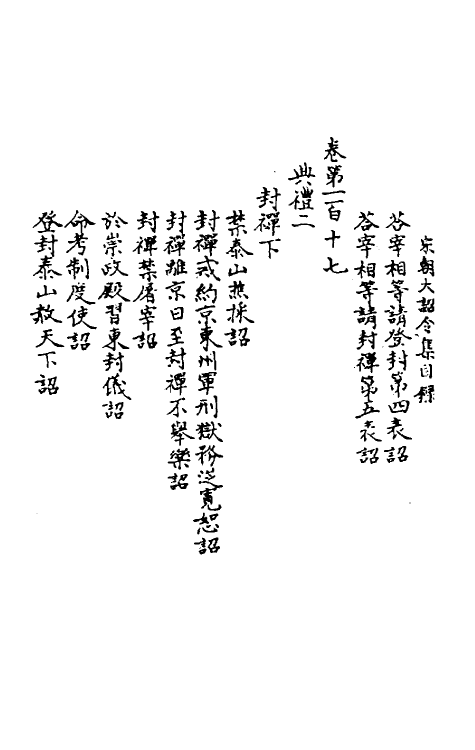 宋朝大詔令集目録
答宰相等請登封第四表詔
答宰相等請封禪第五表詔
卷第一百十七
典禮二
封禪下
禁泰山樵採詔
封禪戒約京東州軍刑獄務從寬恕詔
封禪離京日至封禪不舉樂詔
封禪禁屠宰詔
於崇政殿習東封儀詔
命考制度使詔
登封泰山赦天下詔